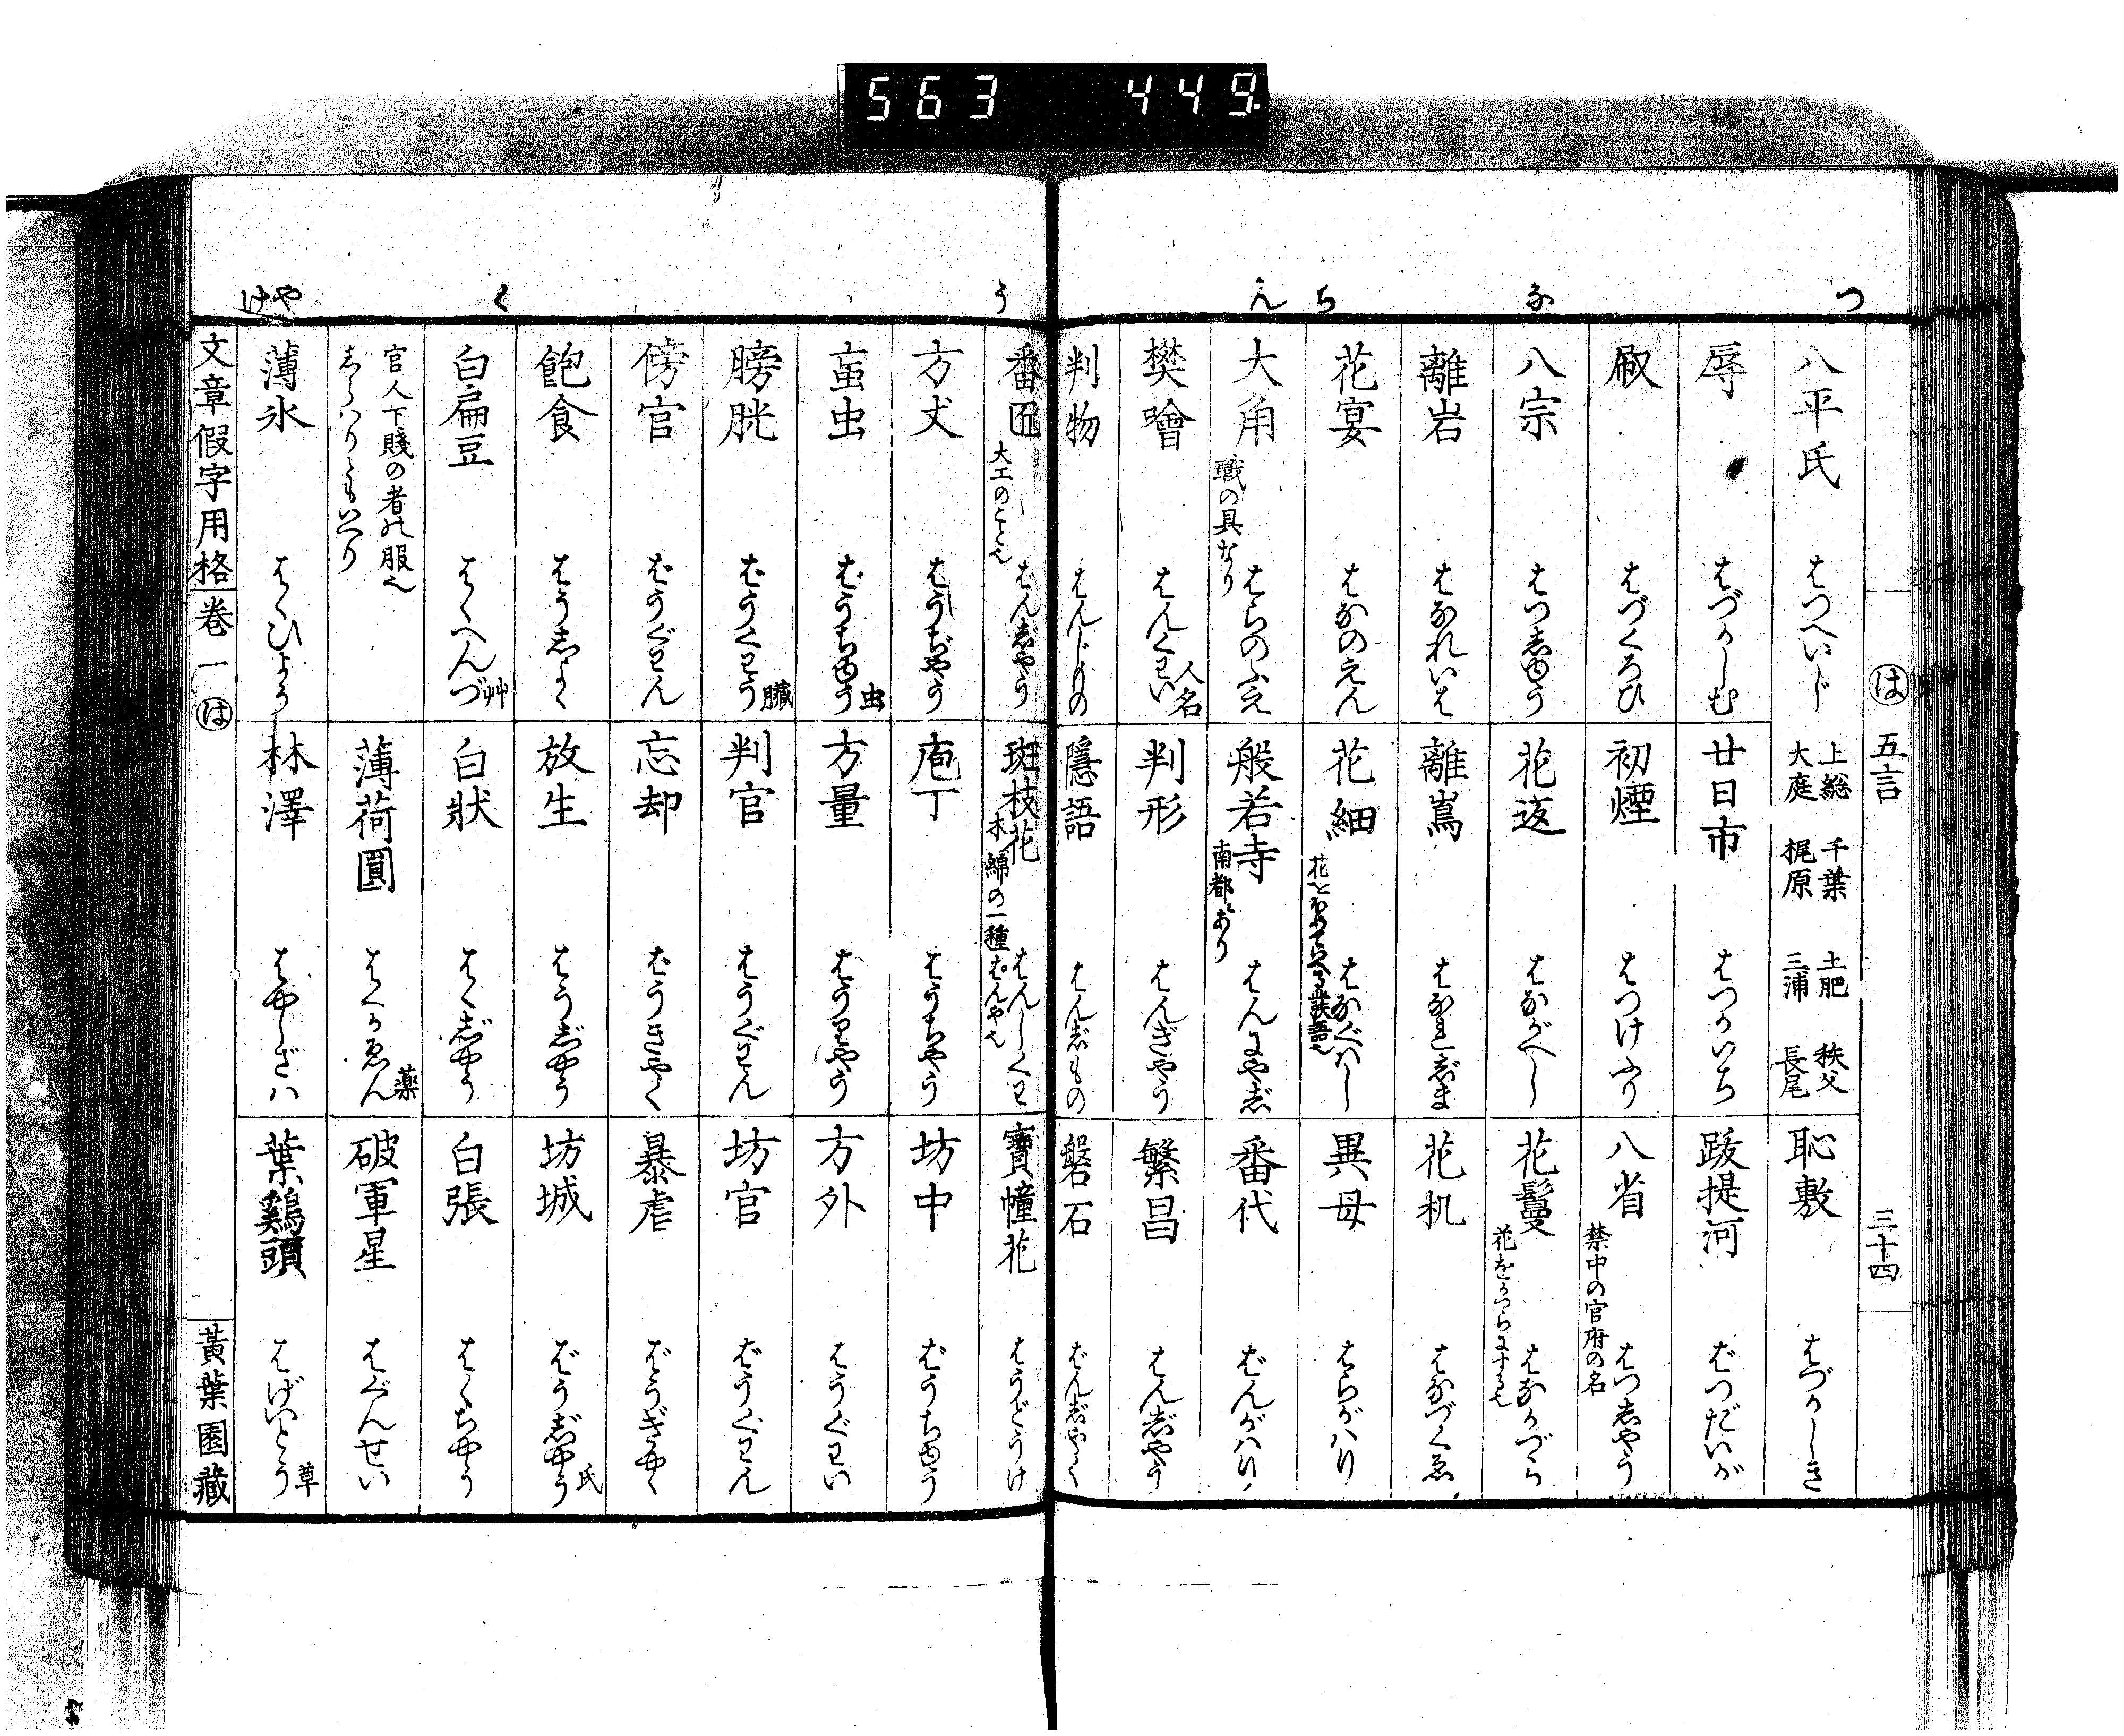 563 449
つ
な
ち
ん
は 五言 三十四
八平氏 はつへいじ 上総 千葉 土肥 秩父 大庭 梶原 三浦 長尾
恥敷 はづかしき
辱 はづかしむ
廿日市 はつかいち
跋提河 ばつだいが
刷 はづくろひ
初煙 はつけふり
八省 禁中の官府の名 はつしやう
八宗 はつしゆう
花返 はながへし
花鬘 花をかつらにする也 はなかづら
離岩 はなれいは
離嶌 はなれじま
花机 はなづくゑ
花宴 はなのえん
花細 はなぐはし
異母 はらがはり
大角 職の具なり はらのふえ
般若寺 南都にあり はんにやじ
番代 ばんがはり
樊噲 はんくわい 人名
判形 はんぎやう
繁昌 はんじやう
判物 はんじもの
隠語 はんじもの
磐石 ばんじやく
う
く
や
け
番匠 大工のこと也 ばんじやう
斑枝花 木綿の一種 はんしくわ ばんや也
寶幢花 はうどうけ
方丈 はうぢやう
庖丁 はうちやう
坊中 ばうちゆう
蝱虫 ばうちゆう 虫
方量 はうりやう
方外 はうぐわい
膀胱 ばうくわう 臓
判官 はうぐわん
坊官 ばうぐわん
傍官 ばうぐわん
忘却 ばうきやく
暴虐 ばうぎやく
飽食 はうしよく
放生 はうじやう
坊城 ばうじやう 氏
白扁豆 はくへんづ 艸
白狀 はくじやう
白張 はくちやう
官人下賤の者の服也
しらはりともいへり
薄荷圓 はくかゑん 薬
破軍星 はぐんせい
薄氷 はくひよう
林澤 はやしざは
葉鷄頭 はげいとう 草
文章假字用格 卷一 は 黃葉園藏